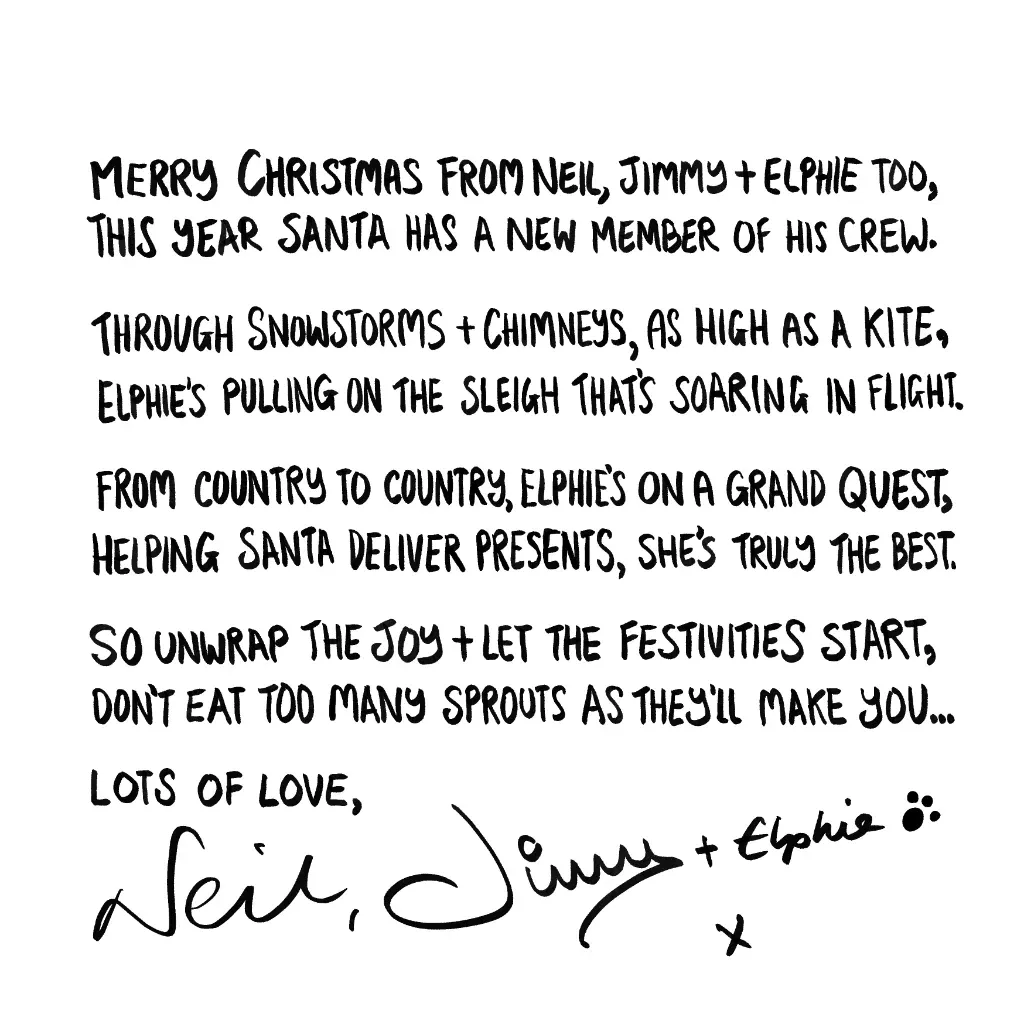 MERRY CHRISTMAS FROM NEIL, JIMMY + ELPHIE TOO,
THIS YEAR SANTA HAS A NEW MEMBER OF HIS CREW.
THROUGH SNOWSTORMS + CHIMNEYS, AS HIGH AS A KITE,
ELPHIE'S PULLING ON THE SLEIGH THAT'S SOARING IN FLIGHT.
FROM COUNTRY TO COUNTRY, ELPHIE'S ON A GRAND QUEST,
HELPING SANTA DELIVER PRESENTS, SHE'S TRULY THE BEST.
SO UNWRAP THE JOY + LET THE FESTIVITIES START,
DON'T EAT TOO MANY SPROUTS AS THEY'LL MAKE YOU...
LOTS OF LOVE,
Neil, Jimmy + Elphie
x